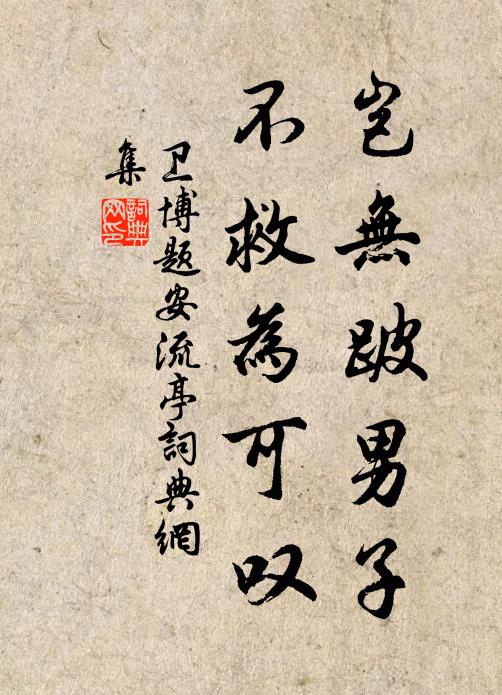 岂無跛男子
不救為可叹
卫博题安流亭詞典網
集
詞典
网印